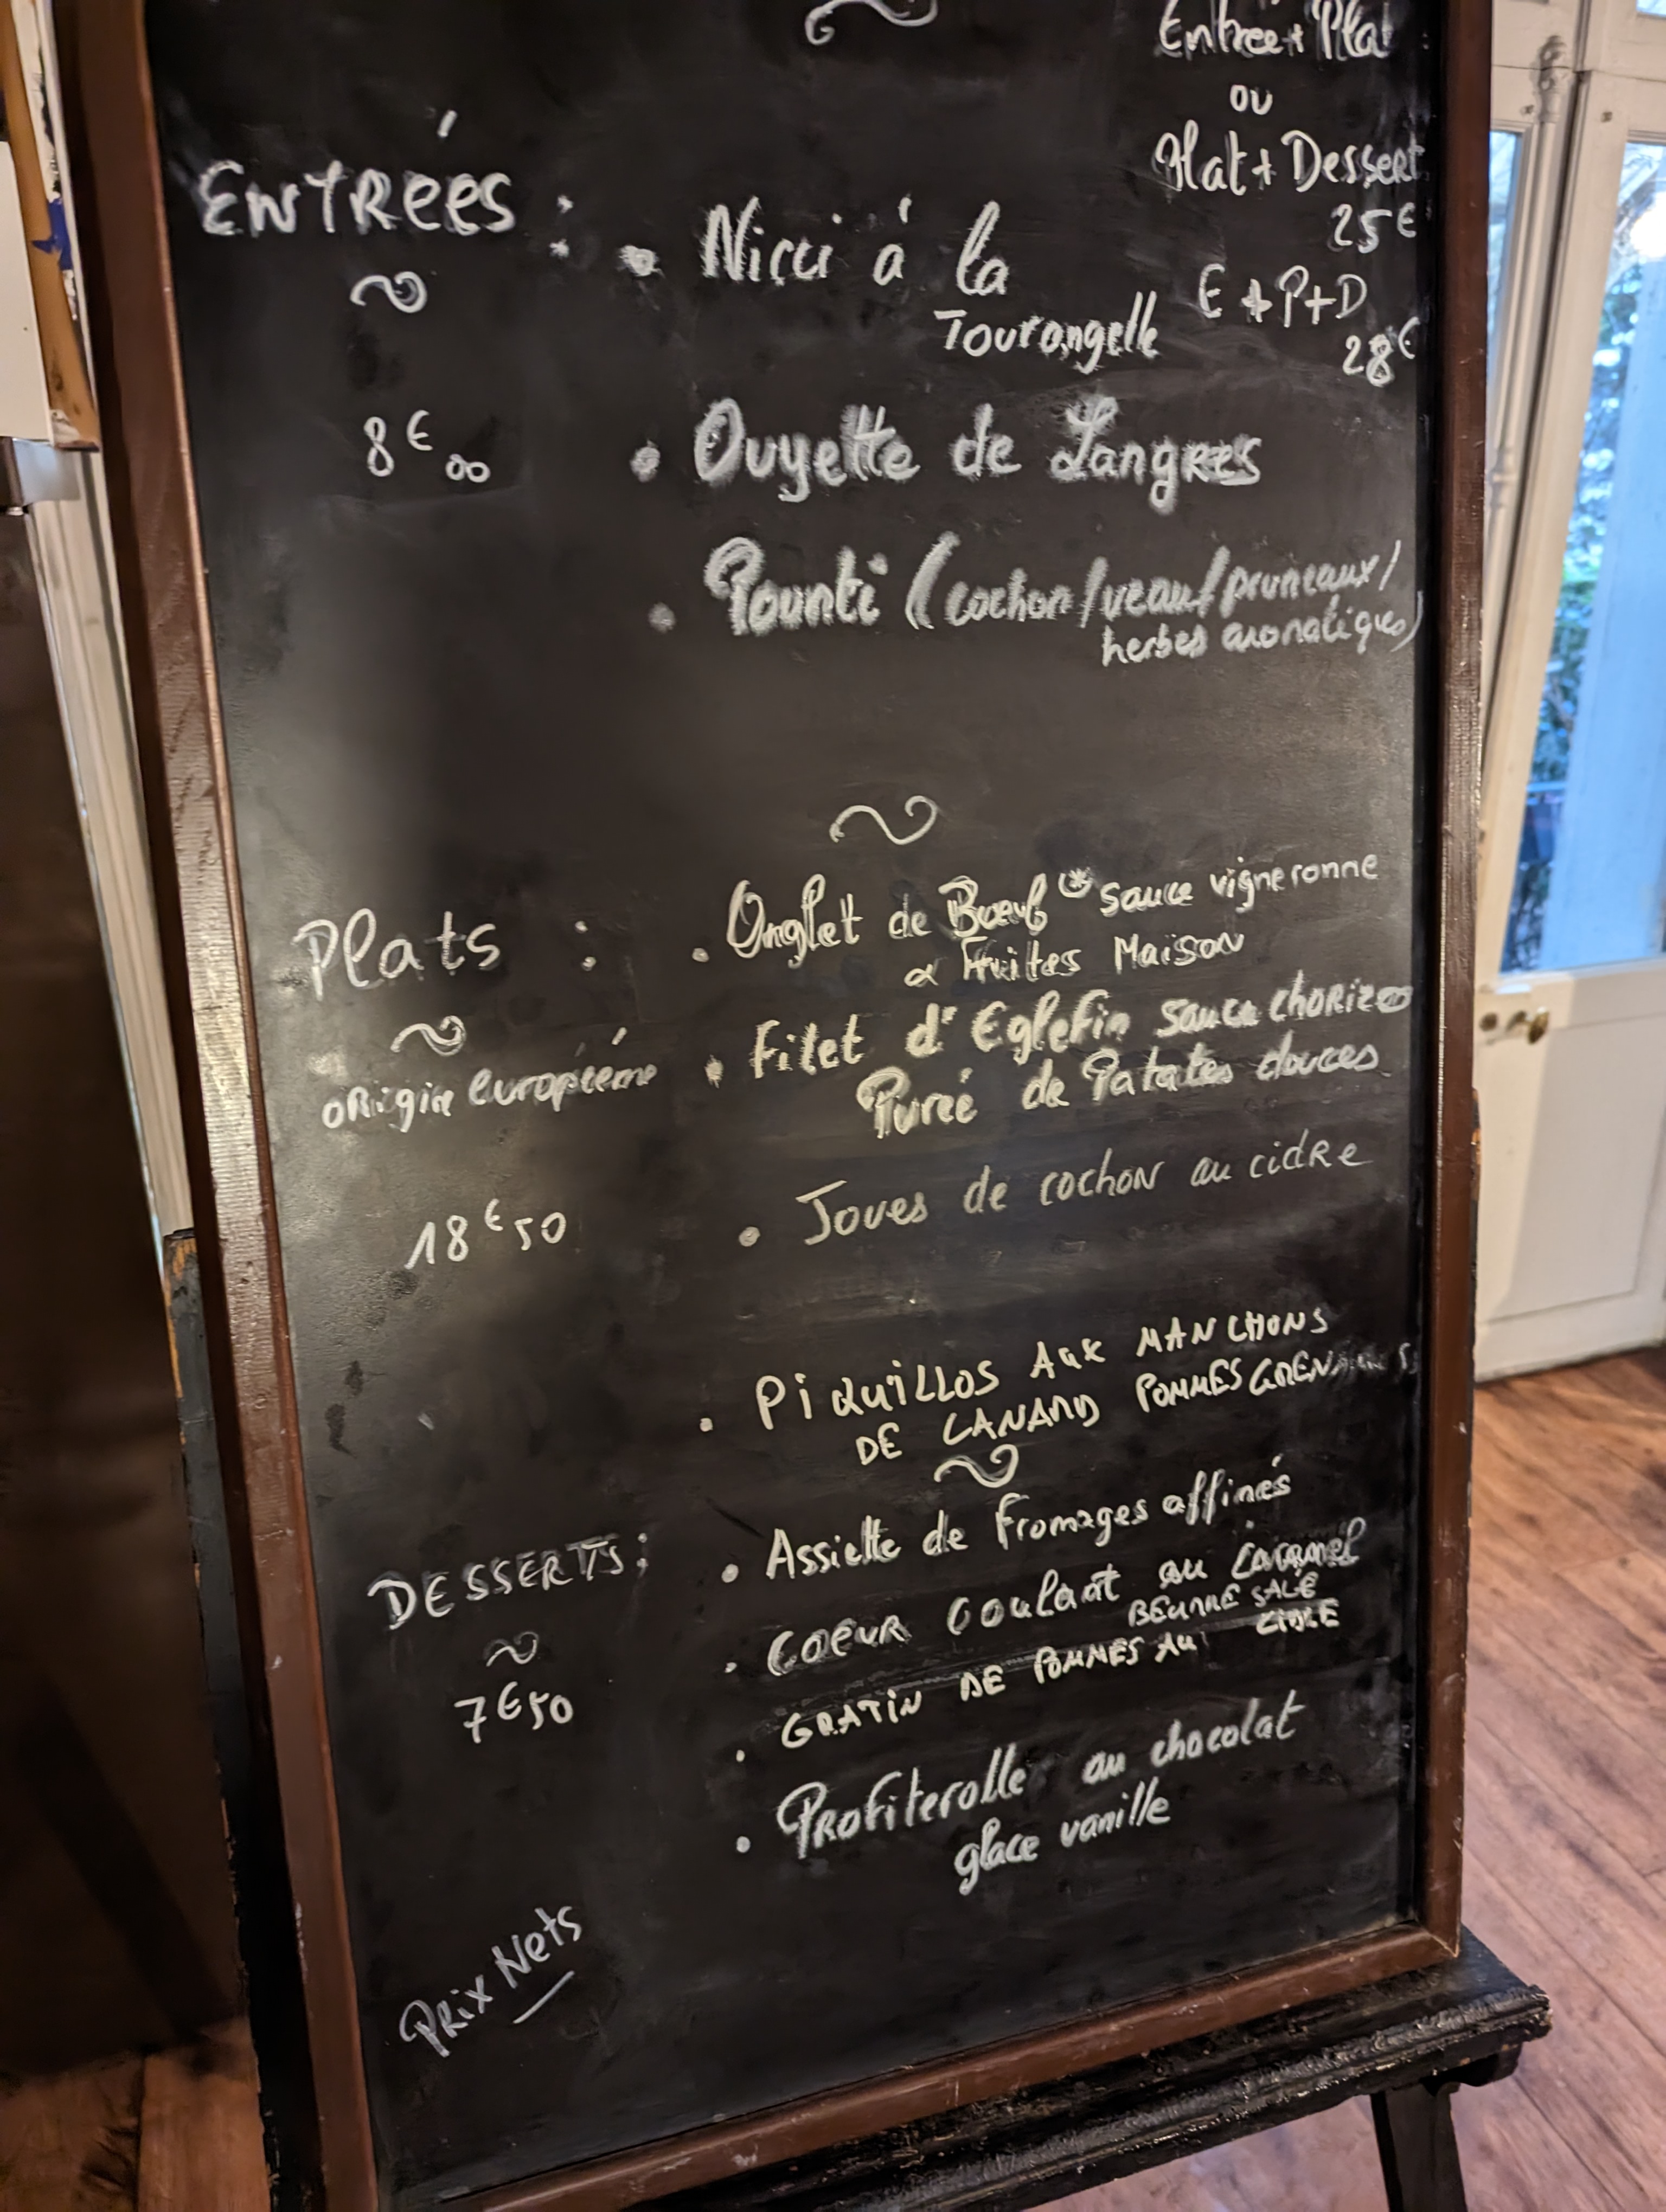 Entrée + Plat
ou
Plat + Dessert
25€
E + P + D
28€
ENTRÉES :
8€00
• Nicci à la
Tourangelle
• Quyette de Langres
• Pounti (cochon/veau/pruneaux/
herbes aromatiques)
Plats :
origine européenne
18€50
• Onglet de Bœuf sauce vigneronne
Frites Maison
• Filet d'Eglefin sauce chorizo
Purée de Patates douces
• Joues de cochon au cidre
• PiQUiLLOS AUX MANCHONS
DE CANARD POMMES GRENAILLES
DESSERTS :
7€50
• Assiette de Fromages affinés
• COEUR Coulant au Caramel
BEURRE SALÉ
• GRATiN DE POMMES AU CIDRE
• Profiterolle au chocolat
glace vanille
PRiX Nets